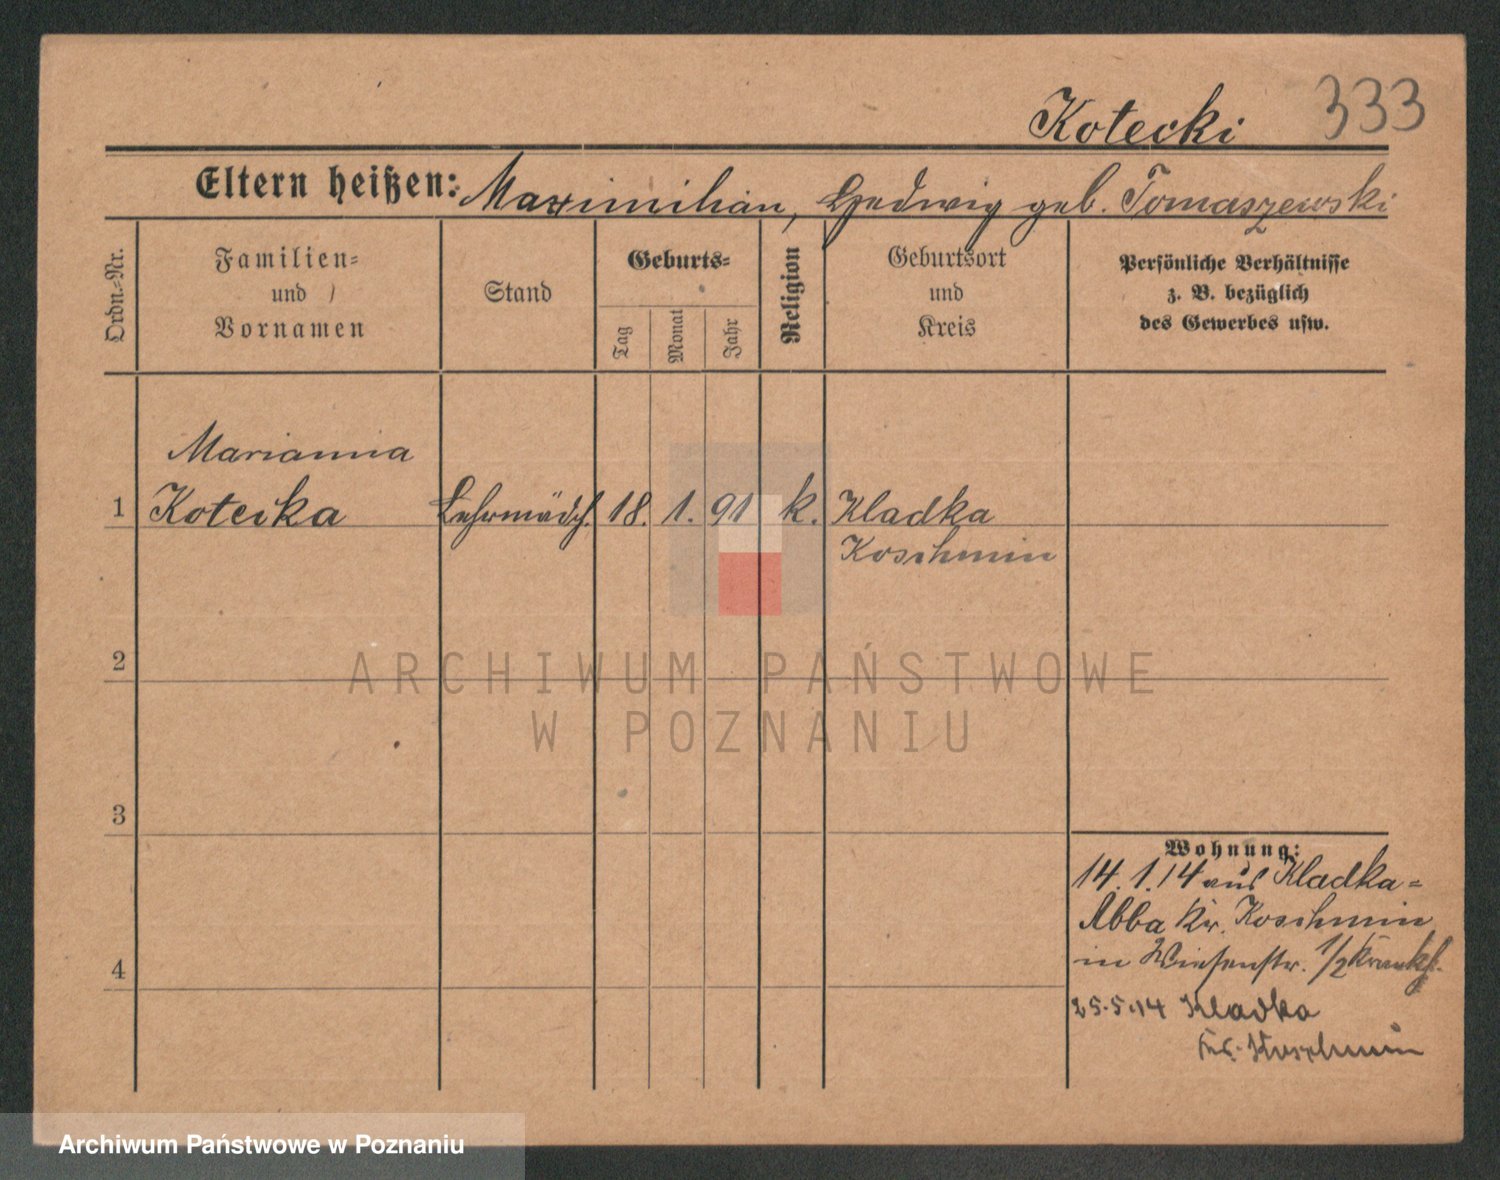 Kotecki 333
Eltern heißen: Maximilian, Hedwig geb. Tomaszewski
Ordn.-Nr.
Familien-
und
Vornamen
Stand
Geburts-
Tag
Monat
Jahr
Religion
Geburtsort
und
Kreis
Persönliche Verhältnisse
z. B. bezüglich
des Gewerbes usw.
Marianna
1 Kotecka Lehrmädch. 18. 1. 91 k. Kladka
Koschmin
2
ARCHIWUM PAŃSTWOWE
W POZNANIU
3
Wohnung:
14.1.14 aus Kladka-
Abba Kr. Koschmin
4
in Wiesenstr. 1/2
25.5.14 Kladka
Kr. Koschmin
Archiwum Państwowe w Poznaniu